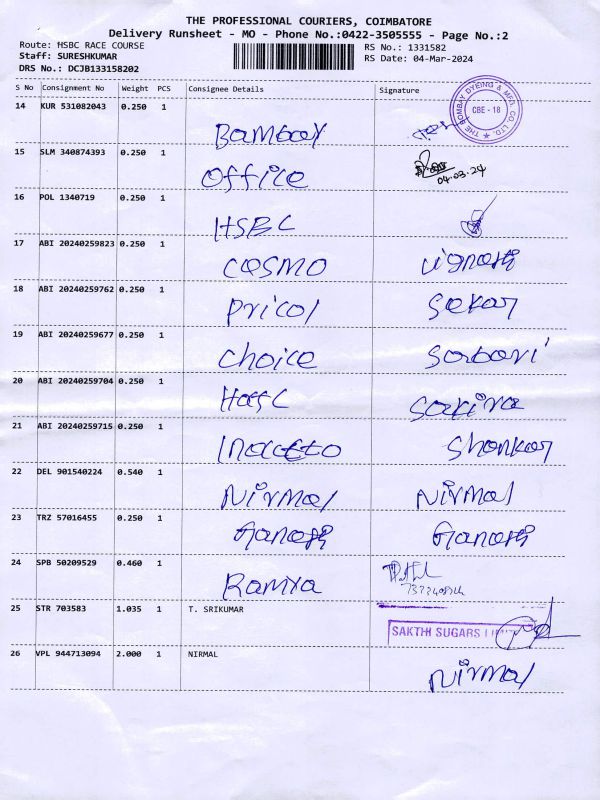 THE PROFESSIONAL COURIERS, COIMBATORE
Delivery Runsheet - MO - Phone No.:0422-3505555 - Page No.:2
Route: HSBC RACE COURSE RS No.: 1331582
Staff: SURESHKUMAR RS Date: 04-Mar-2024
DRS No.: DCJB133158202
S No Consignment No Weight PCS Consignee Details Signature
14 KUR 531082043 0.250 1 Bombay
THE BOMBAY DYEING & MFA. CO. LTD. CBE - 18
15 SLM 340874393 0.250 1 Office 04.03.24
16 POL 1340719 0.250 1 HSBC
17 ABI 20240259823 0.250 1 COSMO Vignesh
18 ABI 20240259762 0.250 1 Pricol Sekar
19 ABI 20240259677 0.250 1 Choice Sabari
20 ABI 20240259704 0.250 1 Sakira
21 ABI 20240259715 0.250 1 Shankar
22 DEL 901540224 0.540 1 Nirmal Nirmal
23 TRZ 57016455 0.250 1 Ganesh Ganesh
24 SPB 50209529 0.460 1 Ramya
25 STR 703583 1.035 1 T. SRIKUMAR SAKTHI SUGARS
26 VPL 944713094 2.000 1 NIRMAL Nirmal